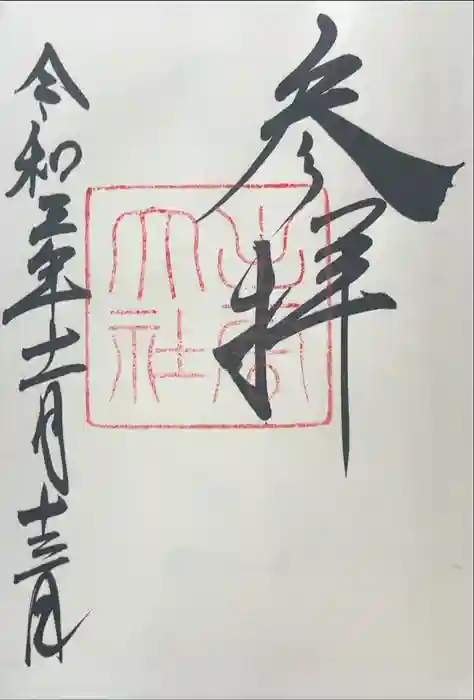 参拝
大社
令和三年十一月十三日